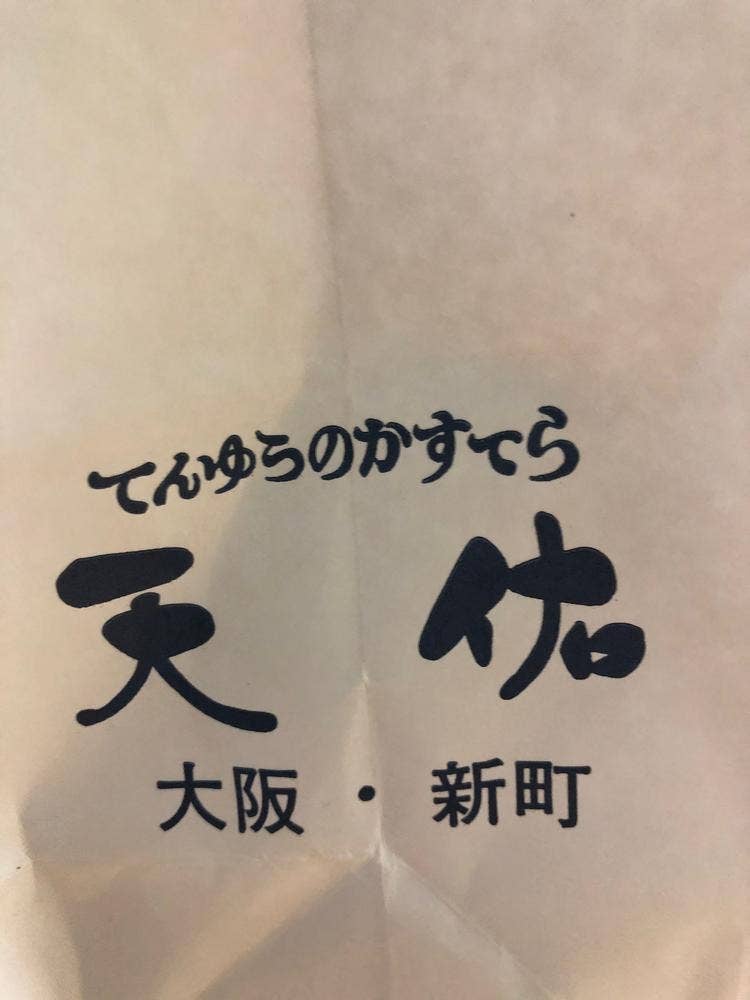 てんゆうのかすてら
天佑
大阪・新町